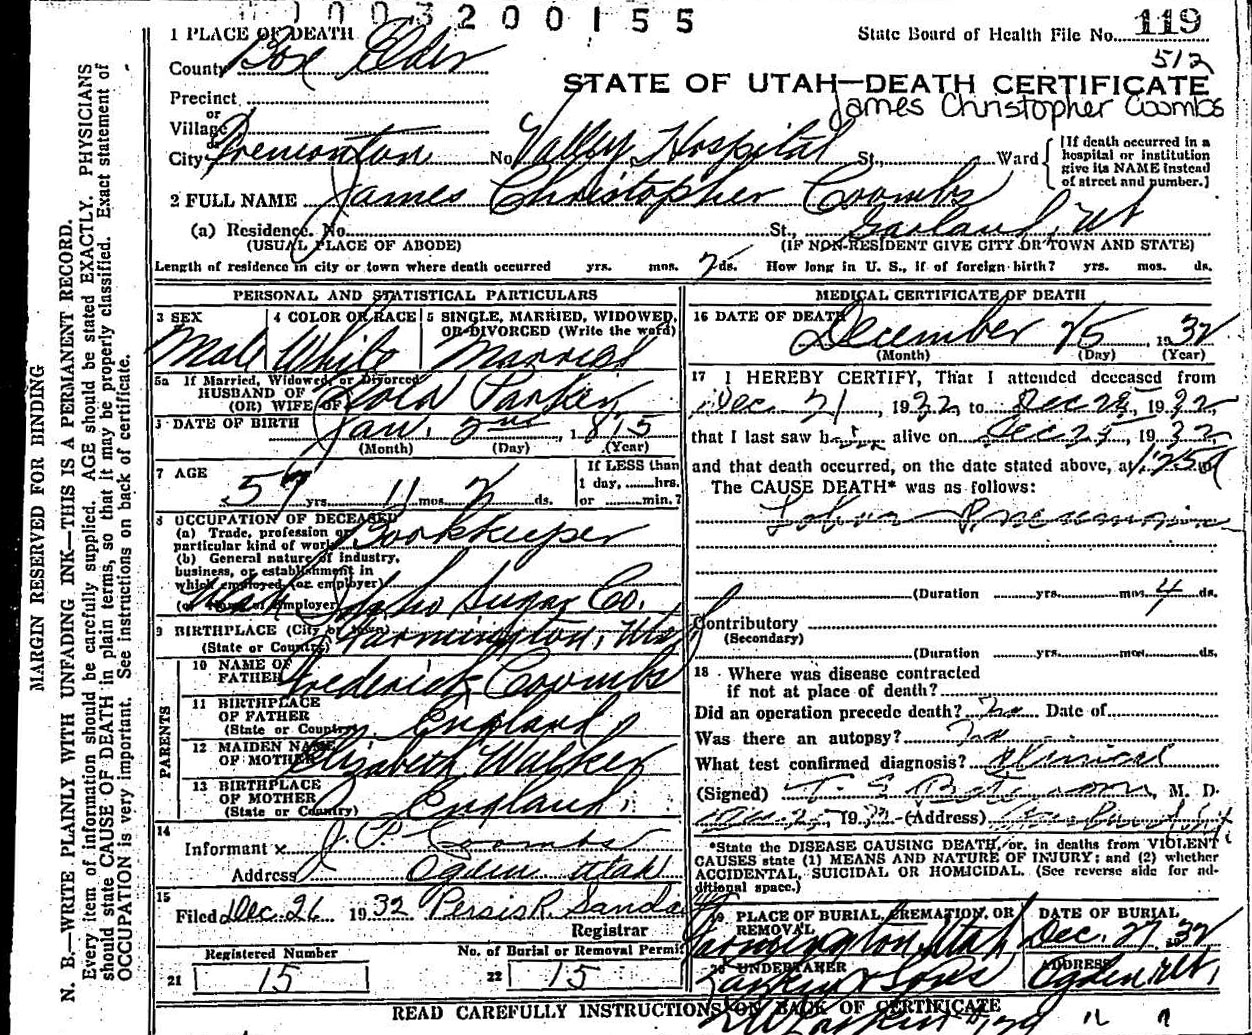 1003200155
119
1 PLACE OF DEATH
State Board of Health File No.
512
County Box Elder
STATE OF UTAH—DEATH CERTIFICATE
James Christopher Coombs
Precinct
or
Village
or
City Tremonton No. Valley Hospital St., Ward
[If death occurred in a
hospital or institution
give its NAME instead
of street and number.]
2 FULL NAME James Christopher Coombs
(a) Residence. No. St., Garland, Ut
(USUAL PLACE OF ABODE) (IF NON-RESIDENT GIVE CITY OR TOWN AND STATE)
Length of residence in city or town where death occurred yrs. mos. ds. How long in U. S., if of foreign birth? yrs. mos. ds.
PERSONAL AND STATISTICAL PARTICULARS
3 SEX
Male
4 COLOR OR RACE
White
5 SINGLE, MARRIED, WIDOWED,
OR DIVORCED (Write the word)
Married
5a If Married, Widowed, or Divorced
HUSBAND OF
(OR) WIFE OF Parker
6 DATE OF BIRTH Jan. 2nd, 1875
(Month) (Day) (Year)
7 AGE
57 yrs. 11 mos. ds.
If LESS than
1 day, hrs.
or min.?
8 OCCUPATION OF DECEASED
(a) Trade, profession or
particular kind of work Bookkeeper
(b) General nature of industry,
business, or establishment in
which employed (or employer)
Utah Idaho Sugar Co.
(c) Name of Employer
9 BIRTHPLACE (City or town)
(State or Country) Farmington, Utah
PARENTS
10 NAME OF
FATHER Frederick Coombs
11 BIRTHPLACE
OF FATHER
(State or Country) England
12 MAIDEN NAME
OF MOTHER Elizabeth Walker
13 BIRTHPLACE
OF MOTHER
(State or Country) England
14
Informant x J. P. Coombs
Address Ogden Utah
15
Filed Dec. 26 1932 Persis R. Sanda
Registrar
Registered Number
21 15
No. of Burial or Removal Permit
22 15
MEDICAL CERTIFICATE OF DEATH
16 DATE OF DEATH
December 25, 1932
(Month) (Day) (Year)
17 I HEREBY CERTIFY, That I attended deceased from
Dec. 21, 1932, to Dec 25, 1932,
that I last saw him alive on Dec 25, 1932
and that death occurred, on the date stated above, at m
The CAUSE DEATH* was as follows:
Lobar Pneumonia
(Duration yrs. mos. 4 ds.
Contributory
(Secondary)
(Duration yrs. mos. ds.
18 Where was disease contracted
if not at place of death?
Did an operation precede death? no Date of
Was there an autopsy? no
What test confirmed diagnosis? Clinical
(Signed) M. D.
Dec 25, 1932 (Address)
*State the DISEASE CAUSING DEATH, or, in deaths from VIOLENT
CAUSES state (1) MEANS AND NATURE OF INJURY; and (2) whether
ACCIDENTAL, SUICIDAL OR HOMICIDAL. (See reverse side for additional space.)
19 PLACE OF BURIAL, CREMATION, OR
REMOVAL
Farmington, Utah
DATE OF BURIAL
Dec. 27, 1932
20 UNDERTAKER
Larkin & Sons
ADDRESS
Ogden Ut.
READ CAREFULLY INSTRUCTIONS ON BACK OF CERTIFICATE
MARGIN RESERVED FOR BINDING
N. B.—WRITE PLAINLY WITH UNFADING INK—THIS IS A PERMANENT RECORD.
Every item of information should be carefully supplied. AGE should be stated EXACTLY. PHYSICIANS
should state CAUSE OF DEATH in plain terms, so that it may be properly classified. Exact statement of
OCCUPATION is very important. See instructions on back of certificate.